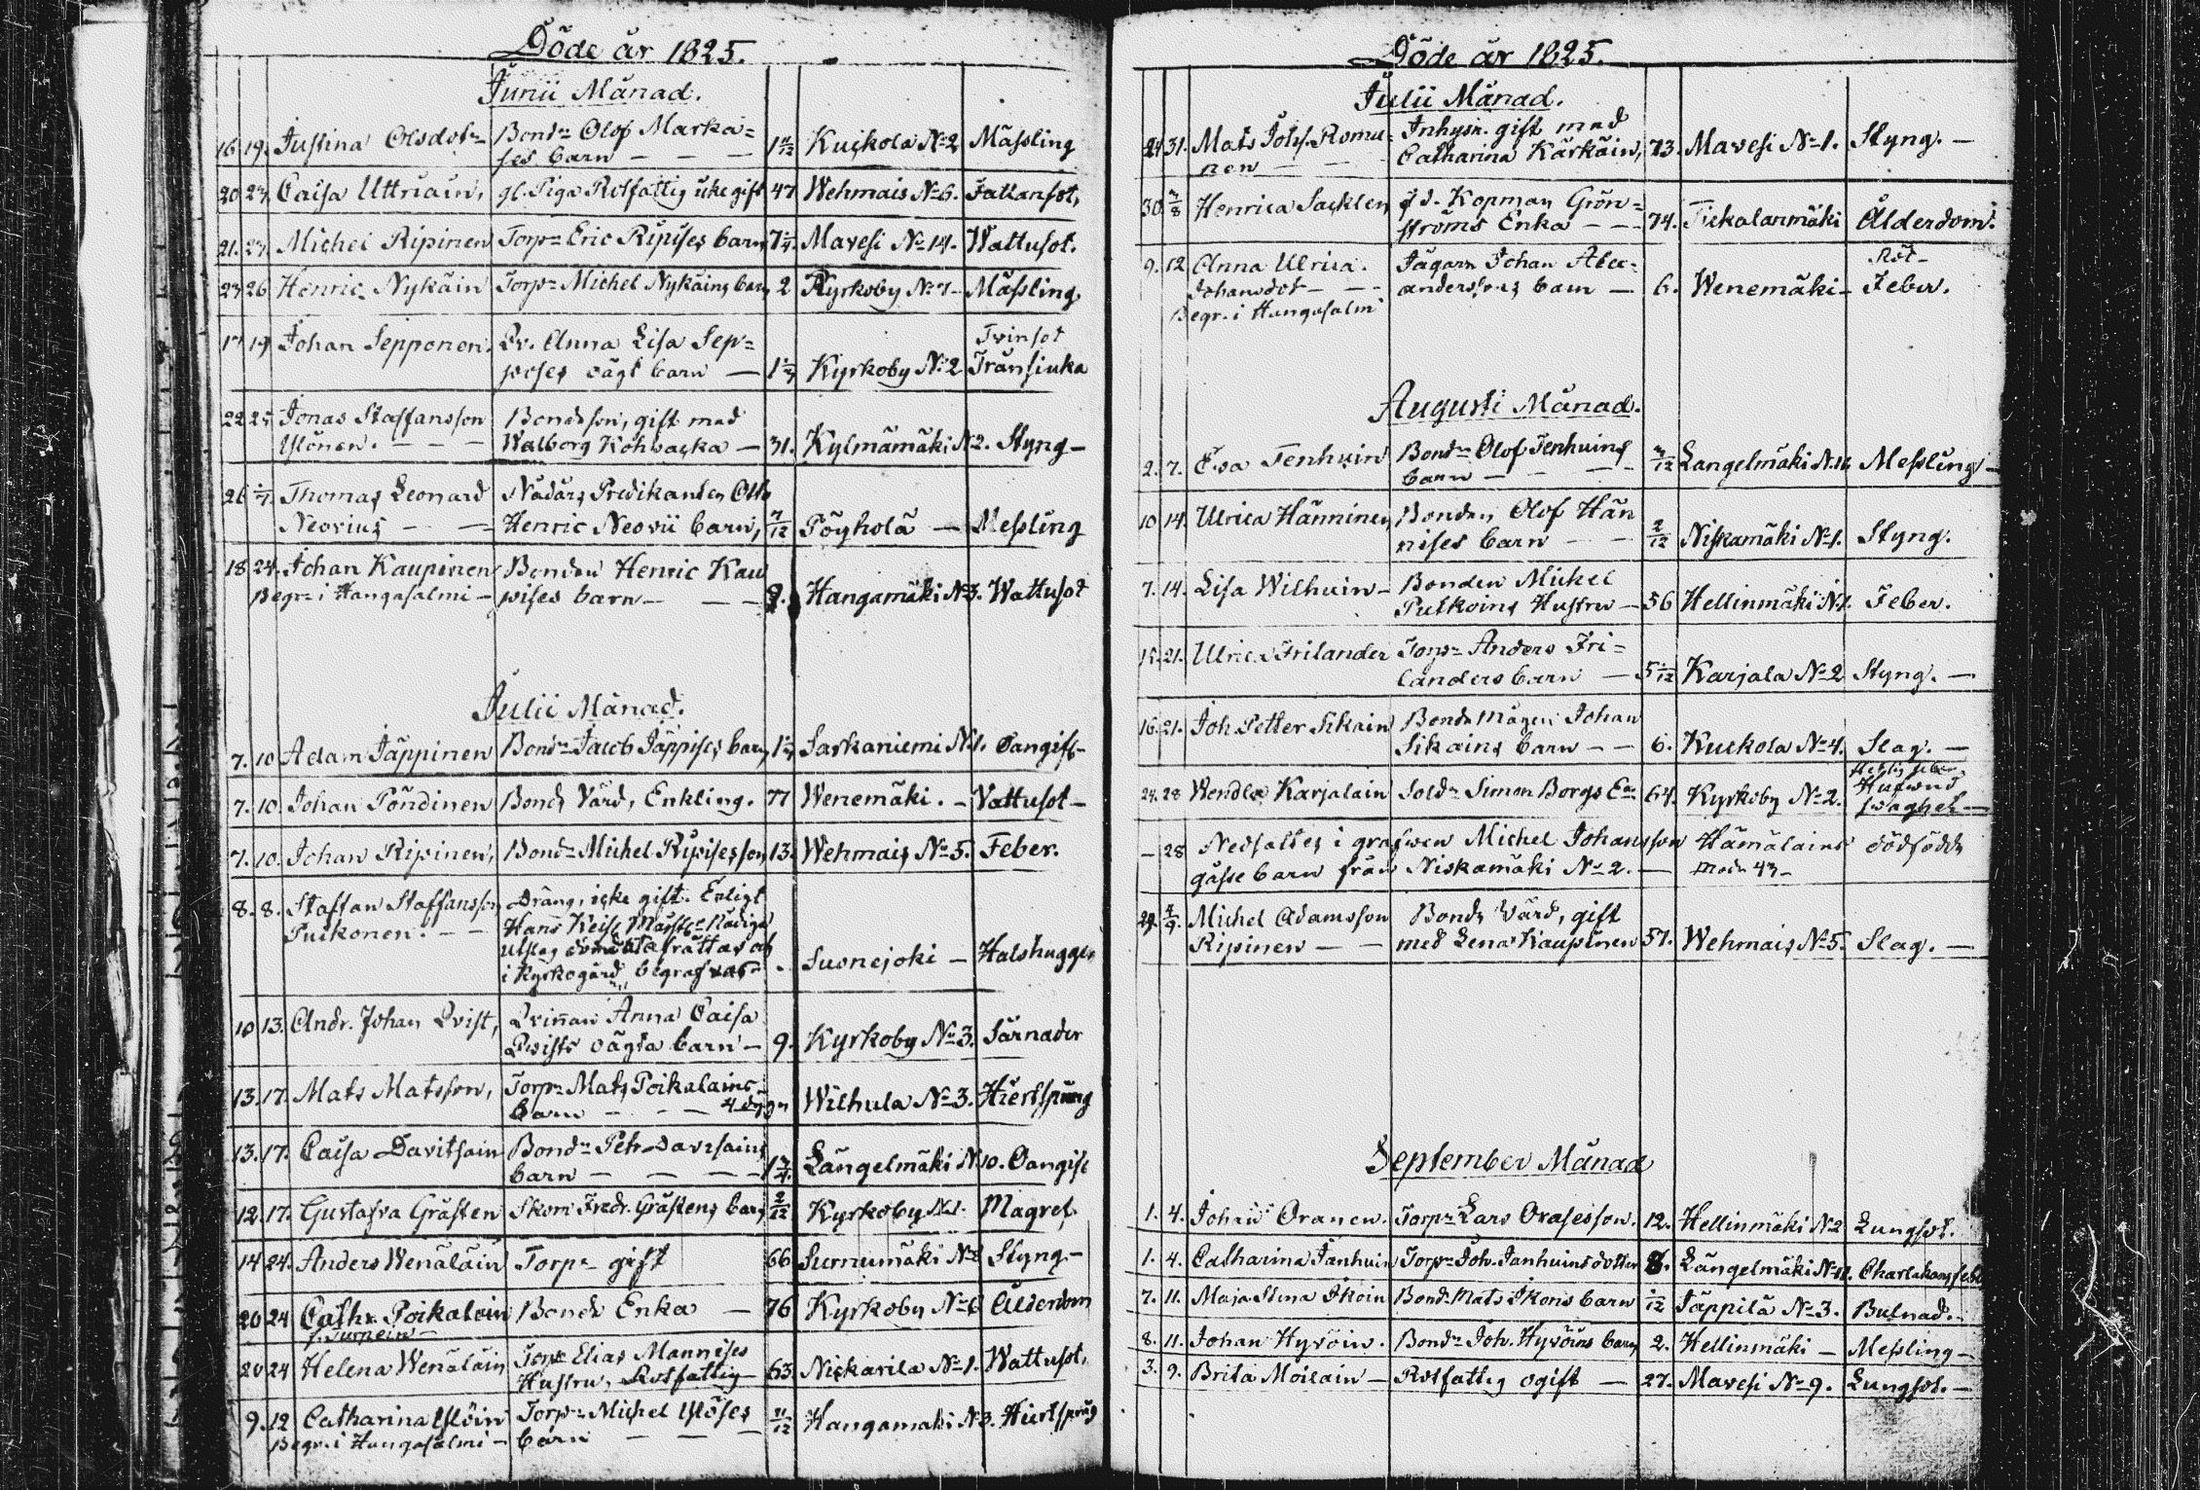 Döde år 1825.
Junii Månad.
16 19. Justina Olsdotr Bondn Olof Marka=
ses barn — — — Kuckola No 2 Mässling
20 23. Caisa Uttriain, gl. Piga Rotfattig icke gift 47 Wehmais No 6. Fallansot,
21. 27. Michel Ripinen Torpn Eric Ripises barn Mavesi No 14. Wattusot.
23 26 Henric Nykäin Torpn Michel Nykäins barn 2 Kyrkoby No 7 – Mässling
17 19 Johan Sepponen. Qv. Anna Lisa Sep= Tvinsot
poses oägt barn — Kyrkoby No 2 Tränsiuka
22 25 Jonas Staffansson Bondeson, gift med
Ylönen. – – – Walborg Kohwacka — 31. Kylmämäki No 2. Styng –
26 Thomas Leonard Nådårs Predikanten Otto
Neovius — — Henric Neovii barn, 7/12 Pöyholä — Messling
18 24. Johan Kaupinen Bonden Henric Kau
Begr. i Hangasalmi – pises barn — — Hangamäki No 3. Wattusot
Julii Månad.
7. 10 Adam Jäppinen Bondn Jacob Jäppises barn Saskaniemi No 1. Oangift –
7. 10. Johan Pöndinen Bonds Värd, Enkling. 77 Wenemäki. – Vattusot –
7. 10. Johan Ripinen, Bondn Michel Ripises son 13. Wehmais No 5. Feber.
8. 8. Staffan Staffansson Dräng, icke gift. Enligt
Puikonen. – – Hans Keis. Majsts Nådiga
Utslag
i Kyrkogård begrafvas Suonejoki – Halshuggen
10 13. Andr. Johan Qvist, Qvinnan Anna Caisa
Qwists oägta barn – 9. Kyrkoby No 3. Särnader
13. 17. Mats Matsson, Torpn Mats Poikalains
barn — — 4 dygn Wilhula No 3. Hiertsprång
13. 17. Caisa Davitsain Bondn Petr Davitsains
barn — — — Längelmäki No 10. Oangift
12. 17. Gustafva Gråsten Skom. Fredr. Gråstens barn 2/12 Kyrkoby No 1. Magref.
14 24. Anders Wenäläin Torpn gift 66 Surnumäki No 8 Styng –
20 24 Cathr. Poikalain Bonds Enka — 76 Kyrkoby No 6 Ålderdom
f. Turpein –
20 24 Helena Wenäläin Torpn Elias Mannises
Hustru, Rotfattig – 63. Nickarila No 1. Wattusot.
9. 12 Catharina Ylöin Torpn Michel Ylöses
Begr. i Hangasalmi – barn — — — 11/12 Hangamaki No 3. Hiertsprång
Döde år 1825.
Julii Månad.
24 31. Mats Johs. Romu= Inhysn. gift med
nen — — Catharina Kärkäin, 73. Mavesi No 1. Styng. –
30. 3/8 Henrica Sacklen f.d. Kopman Grön=
ströms Enka – – – 74. Tickalanmäki Ålderdom.
9. 12 Anna Ulrica. Jägarn Johan Alex= Röt-
Johansdot – – – anderssons barn – 6. Wenemäki – Feber.
Begr. i Hangasalmi
Augusti Månad.
2. 7. Eva Tenhuin Bondn Olof Tenhuins
barn — — Langelmäki No 16 Messling –
10 14. Ulrica Hänninen Bonden Olof Hän
nises barn — — 2/12 Niskamäki No 1. Styng.
7. 14. Lisa Wilhuin – Bonden Michel
Putkoins Hustru – 56 Hellinmäki No 1. Feber.
15. 21. Ulrica Frilander Torpn Anders Fri=
landers barn — Karjala No 2 Styng. –
16. 21. Joh. Petter Sikain Bonds Mågen Johan
Sikains barn – – 6. Kuckola No 4. Slag. –
24. 28 Wendla Karjalain Soldn Simon Borgs Ea 64. Kyrkoby No 2. Hufwud
— 28 Nedsattes i grafwen Michel Johansson Hämälains dödfödda
gåsse barn från Niskamäki No 2. — Modn 43 –
29. 4/9. Michel Adamsson Bonds Värd, gift
Ripinen — — med Lena Kaupinen 57. Wehmais No 5. Slag. –
September Månad
1. 4. Johan Oranen. Torpn Lars Orasesson. 12. Hellinmäki No 2 Lungsot.
1. 4. Catharina Janhuin Torpn Joh. Janhuins dotter 8. Längelmäki No 12. Charlakansfeber
7. 11. Maja Stina Ikoin Bondn Mats Ikois barn 1/12 Jäppilä No 3. Bulnad. –
8. 11. Johan Hyvöin. Bondn Joh. Hyvöins barn 2. Hellinmäki – Messling –
3. 9. Brita Moilain – Rotfattig ogift — 27. Mavesi No 9. Lungsot. –